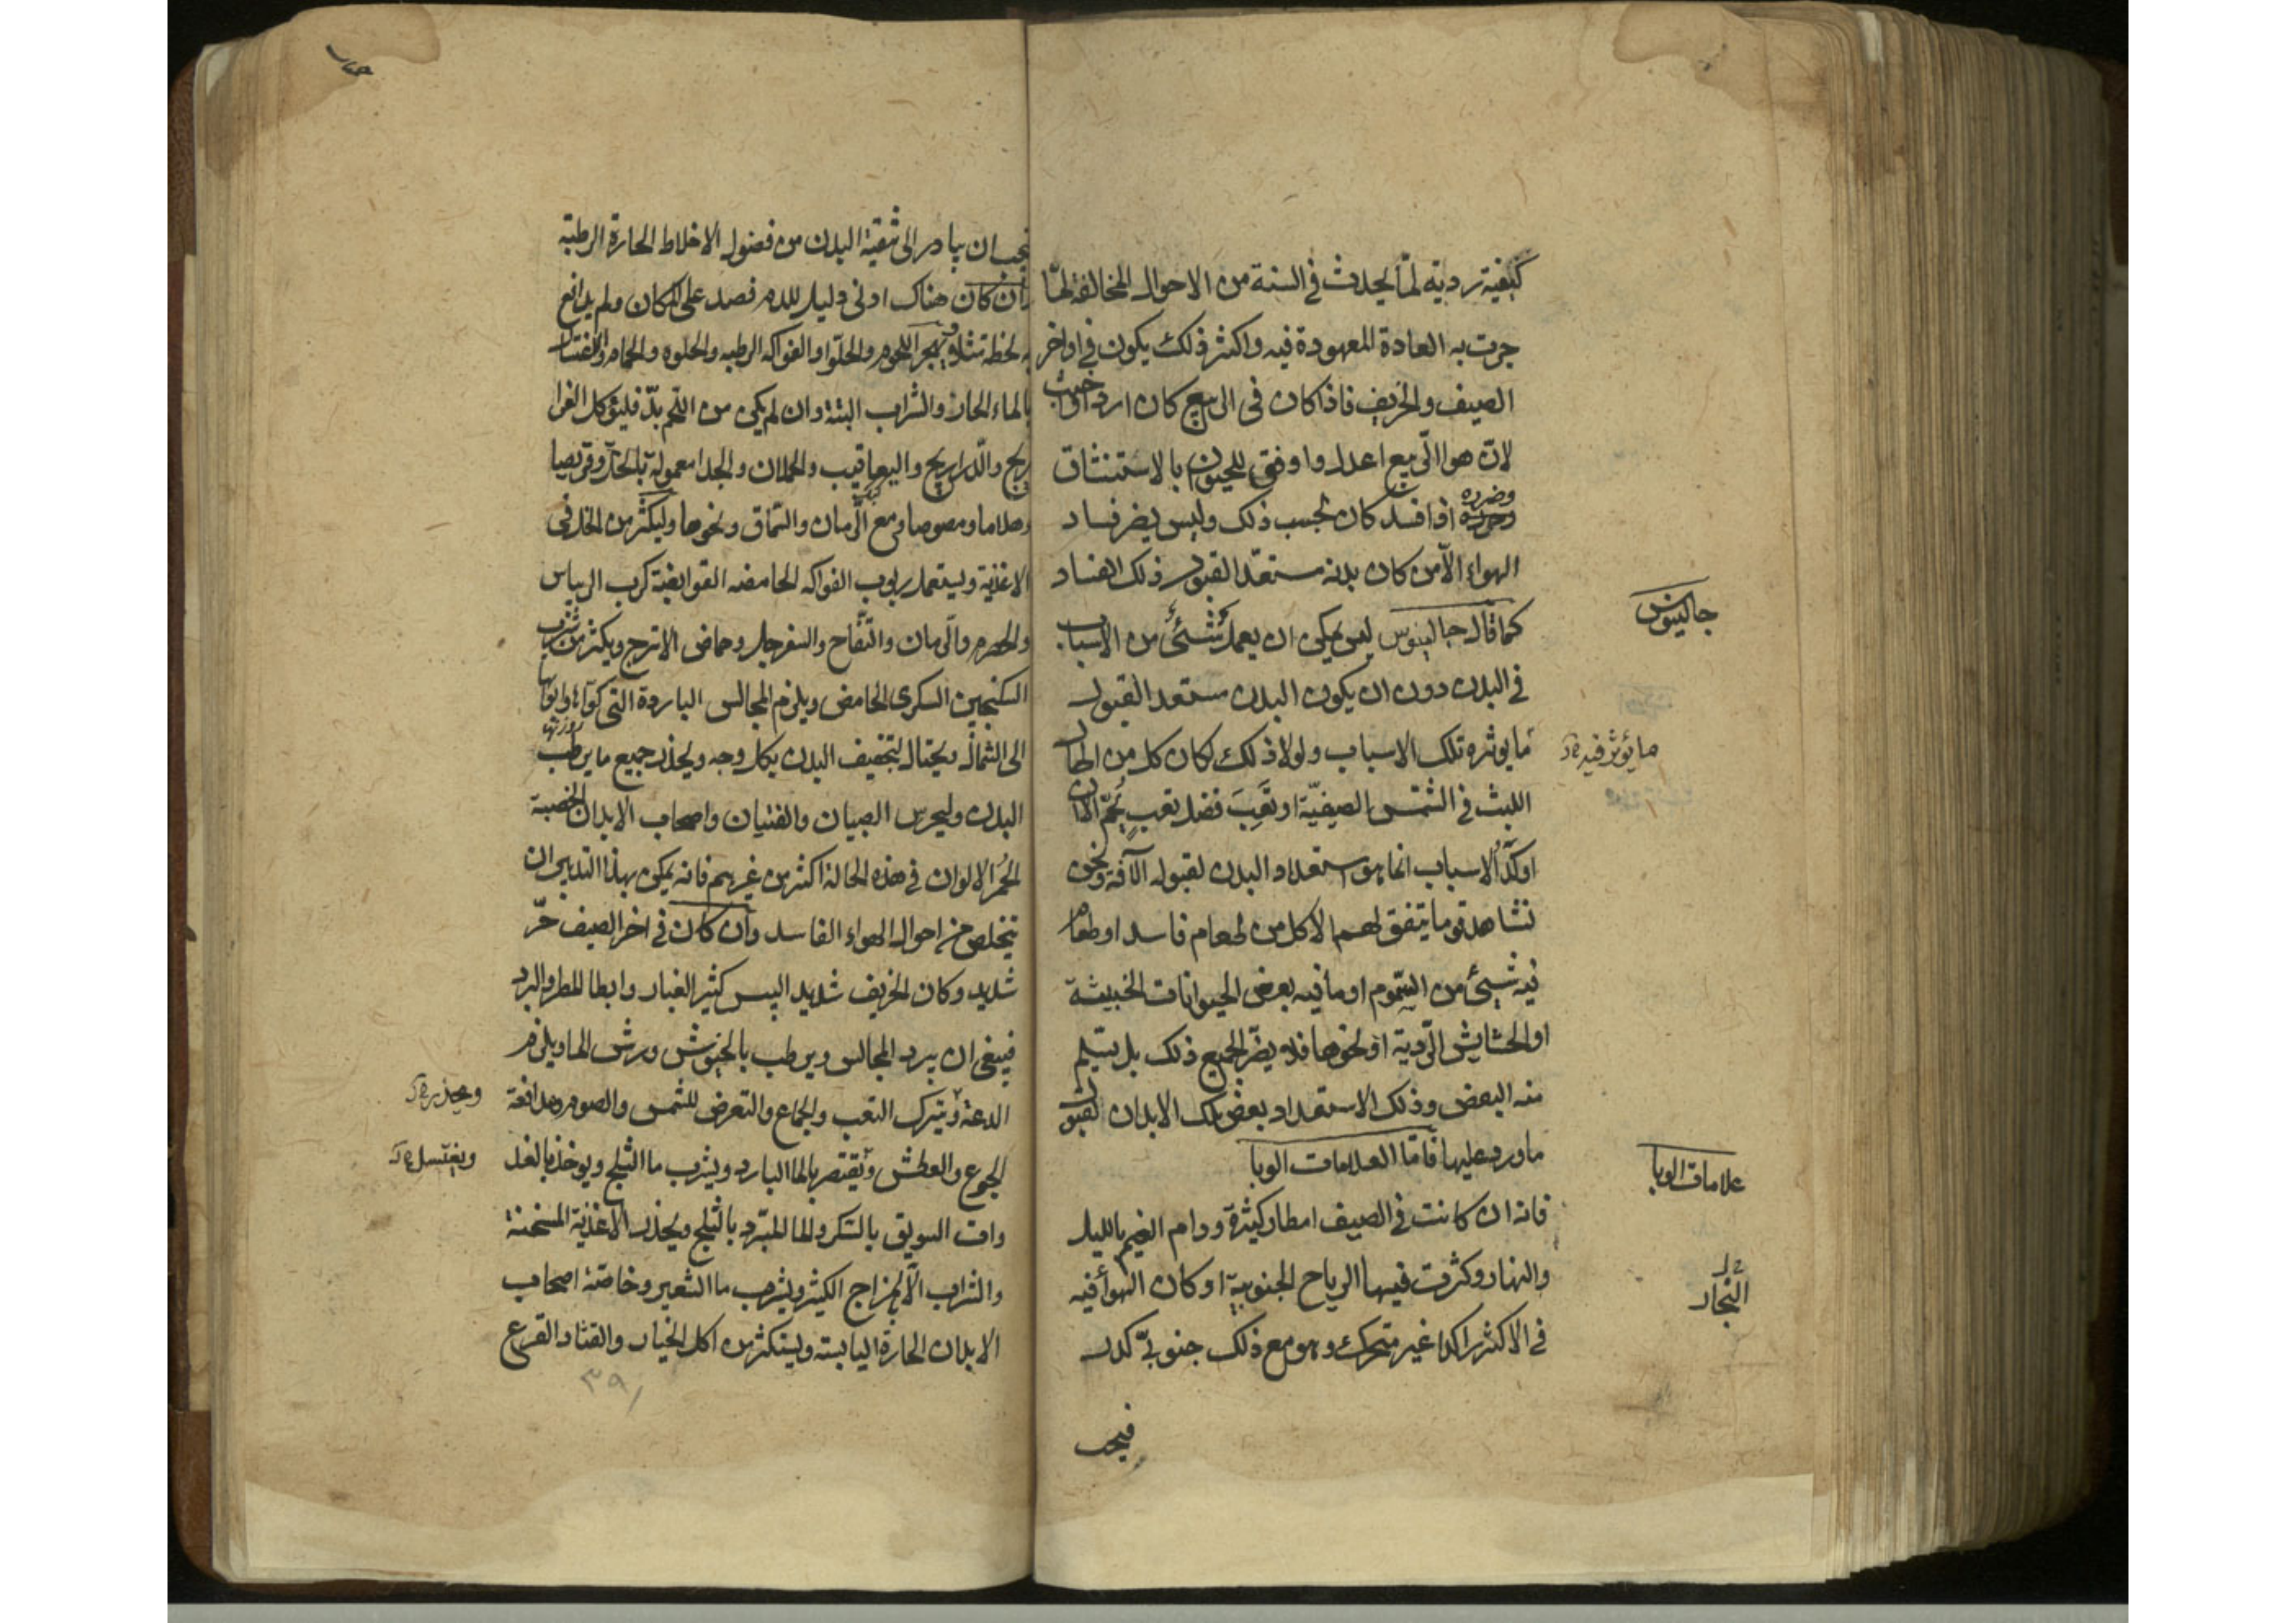 كيفية تردية لما يحدث في السنة من الاحوال المخالفة لما
جرت به العادة المعهودة فيه واكثر ذلك يكون في اواخر
الصيف والخريف فاذا كان فى الربيع كان اردا واخبث
لانّ هوا الربيع اعدل واوفق للحيوان بالاستنشاق
وضرره اذا فسد كان بحسب ذلك وليس يضر فساد
الهواء الّا من كان بدنه مستعدّا لقبول ذلك الفساد
كما قال جالينوس ليس يمكن ان يعمل شئ من الاسباب
في البدن دون ان يكون البدن مستعدا لقبول
ما يوثره تلك الاسباب ولولا ذلك لكان كل من اطال
اللبث في الشمس الصيفيّة او تَعِبَ فضل تعبٍ يُحَمّ الا ان
اوكد الاسباب انما هو استعداد البدن لقبول الآفة ونحن
نشاهد قوما يتفق لهم الاكل من طعام فاسد او طعام
فيه شيئ من السّموم او ما فيه بعض الحيوانات الخبيثة
او الحشايش الرّدية او نحوها فلا يضرّ الجميع ذلك بل يسلم
منه البعض وذلك لاستعداد بعض تلك الابدان لقبول
ما ورد عليها فامّا العلامات الوبا
فانه ان كانت في الصيف امطار كثيرة ودام الغيم بالليل
والنهار وكثرت فيها الرياح الجنوبية او كان الهوأ فيه
في الاكثر راكدا غير متحرك وهو مع ذلك جنوبيّ كدر
فيجب
جالينوس
ما يؤثر فيه
علامات الوبا
البخار
فيجب ان يبادر الى تنقية البدن من فضول الاخلاط الحارة الرطبة
وان كان هناك ادنى دليل للدم فصد على المكان ولم يدافع
به لحظة مثلا ويهجر اللحوم والحلوا والفواكه الرطبه والحلوه والحمام والاغتسال
بالماء الحار والشراب البتة وان لم يكن من اللحم بدّ فليؤكل الفرا
ريج والدراريج واليعاقيب والحملان والجدا معمولة بالخلّ وقريصا
وهلاما ومصوصا ومع الرّمان والسّماق ونحوها وليكثر من الخل في
الاغذية ويستعمل ربوب الفواكه الحامضه القوابضة كرب الريباس
والحصرم والرّمان والتفّاح والسفرجل وحماض الاترج ويكثر من شرب
السكنجبين السكرى الحامض ويلزم المجالس الباردة التى كوّاها وابوابها
الى الشمال ويحتال لتجفيف البدن بكل وجه ويحذر جميع ما يرطب
البدن وليحرس الصبيان والفتيان واصحاب الابدان الخصبة
الحُمر الالوان في هذه الحالة اكثر من غيرهم فانه يمكن بهذا التدبير ان
يتخلص من احوال الهواء الفاسد وان كان في اخر الصيف حرّ
شديد وكان الخريف شديد اليبس كثير الغبار وابطا المطر والبرد
فينبغى ان يبرد المجالس ويرطب بالخيوش ورش الما ويلزم
الدعة ويترك التعب والجماع والتعرض للشمس والصوم ومدافعة
الجوع والعطش ويقتصر بالما البارد ويشرب ما الثلج ويوخذ بالغد
وات السويق بالسّكر والما المبرّد بالثلج ويحذر الاغذية المسخنة
والشراب الّا بمزاج الكثير ويشرب ما الشعير وخاصّة اصحاب
الابدان الحارة اليابسة ويستكثر من اكل الخيار والقثاد القرع
ويحذر
ويغتسل
٣٩١